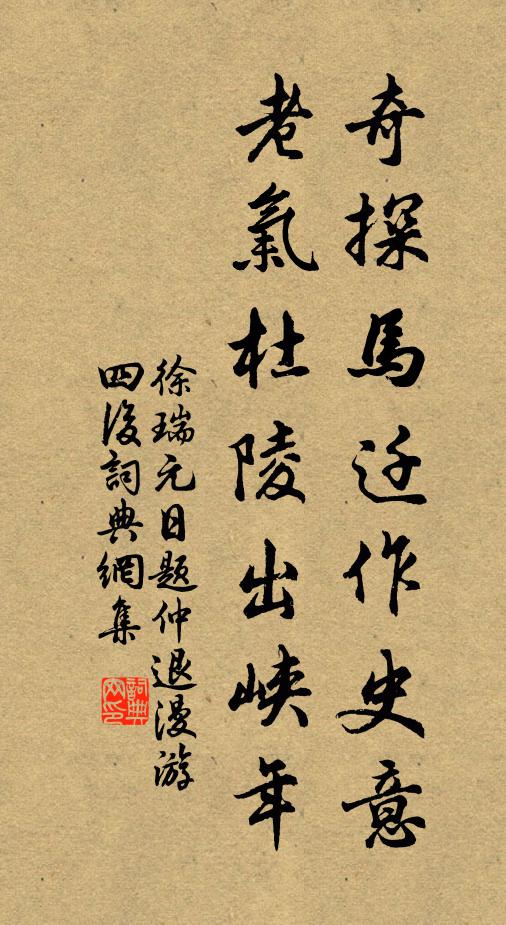 奇探馬迁作史意
老氣杜陵出峽年
徐瑞元日題仲退漫游
四後詞典網集
詞典
网印